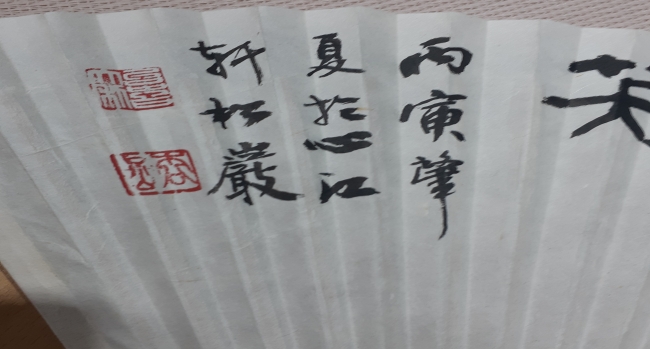 丙寅肇
夏於心江
軒松巖